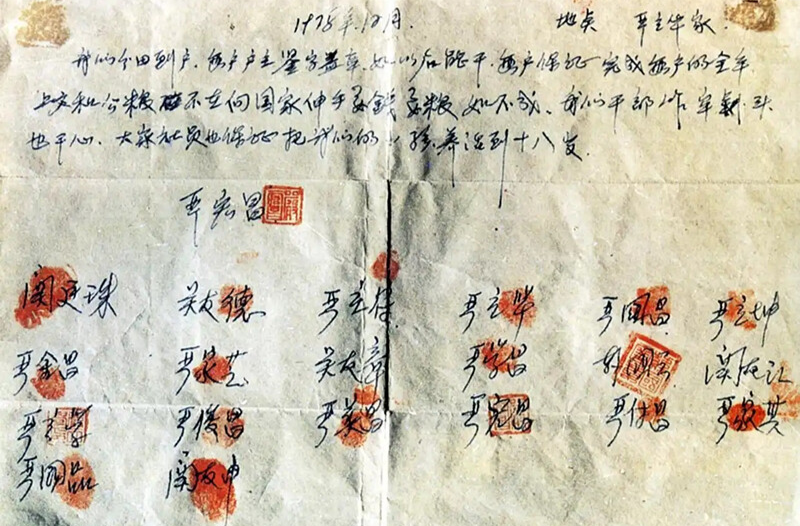 1978年12月. 地点 严立华家.
我们分田到户,每户户主签字盖章,如以后能干,每户保证完成每户的全年
上交和公粮 不在向国家伸手要钱要粮 如不成,我们干部作牢杀头
也干心,大家社员也保证把我们的小孩养活到十八岁.
严宏昌
関廷珠 关友德 严立符 严立华 严国昌 严立坤
严金昌 严家芝 关友章 严学昌 韩国云 関友江
严立学 严俊昌 严美昌 严宏昌 严付昌 严家其
严国品 関友申